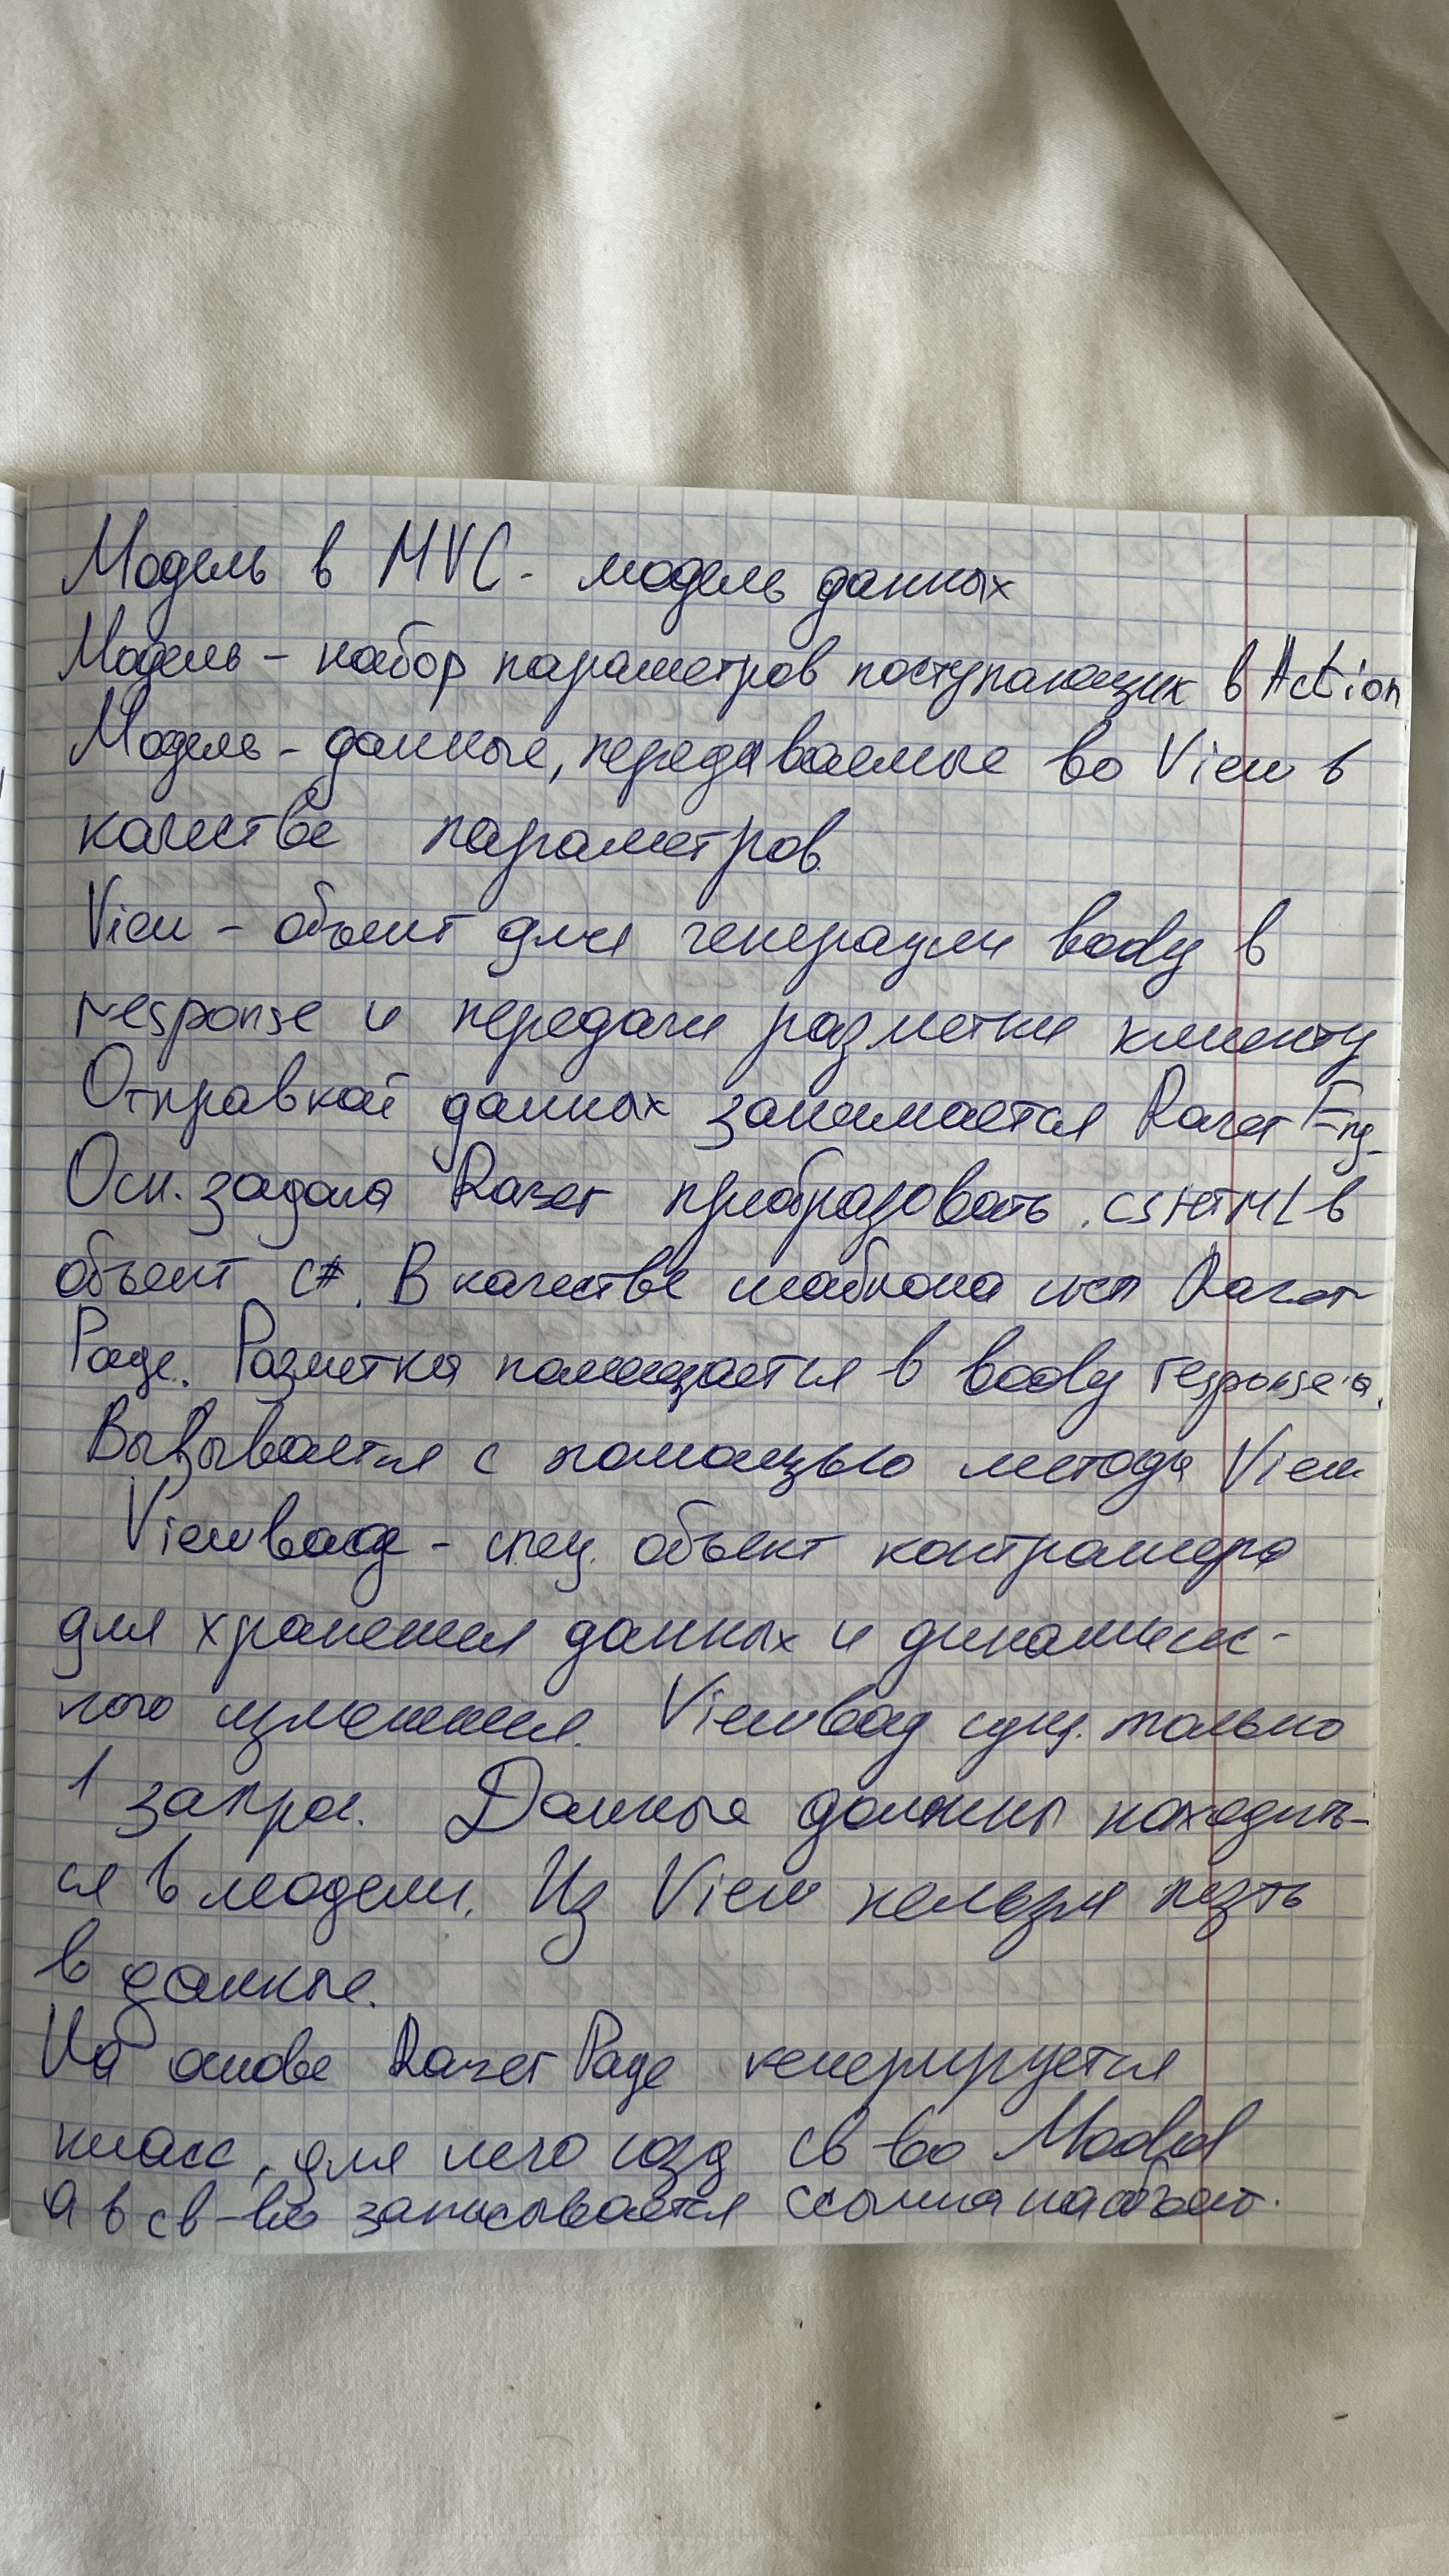 Модель в MVC - модель данных
Модель - набор параметров поступающих в Action
Модель - данные, передаваемые во View в
качестве параметров.
View - объект для генерации body в
response и передачи разметки клиенту
Отправкой данных занимается Razer Eng-
Осн. задача Razer преобразовать .csHTML в
объект C#. В качестве шаблона исп Razor
Page. Разметка помещается в body response'а.
Вызывается с помощью метода View
Viewbag - спец. объект контроллера
для хранения данных и динамичес-
кого изменения. Viewbag сущ. только
1 запрос. Данные должны находить-
ся в модели. Из View нельзя лезть
в данные.
На основе Razer Page генерируется
класс, для него созд св-во Model
а в св-во записывается ссылка на объект.